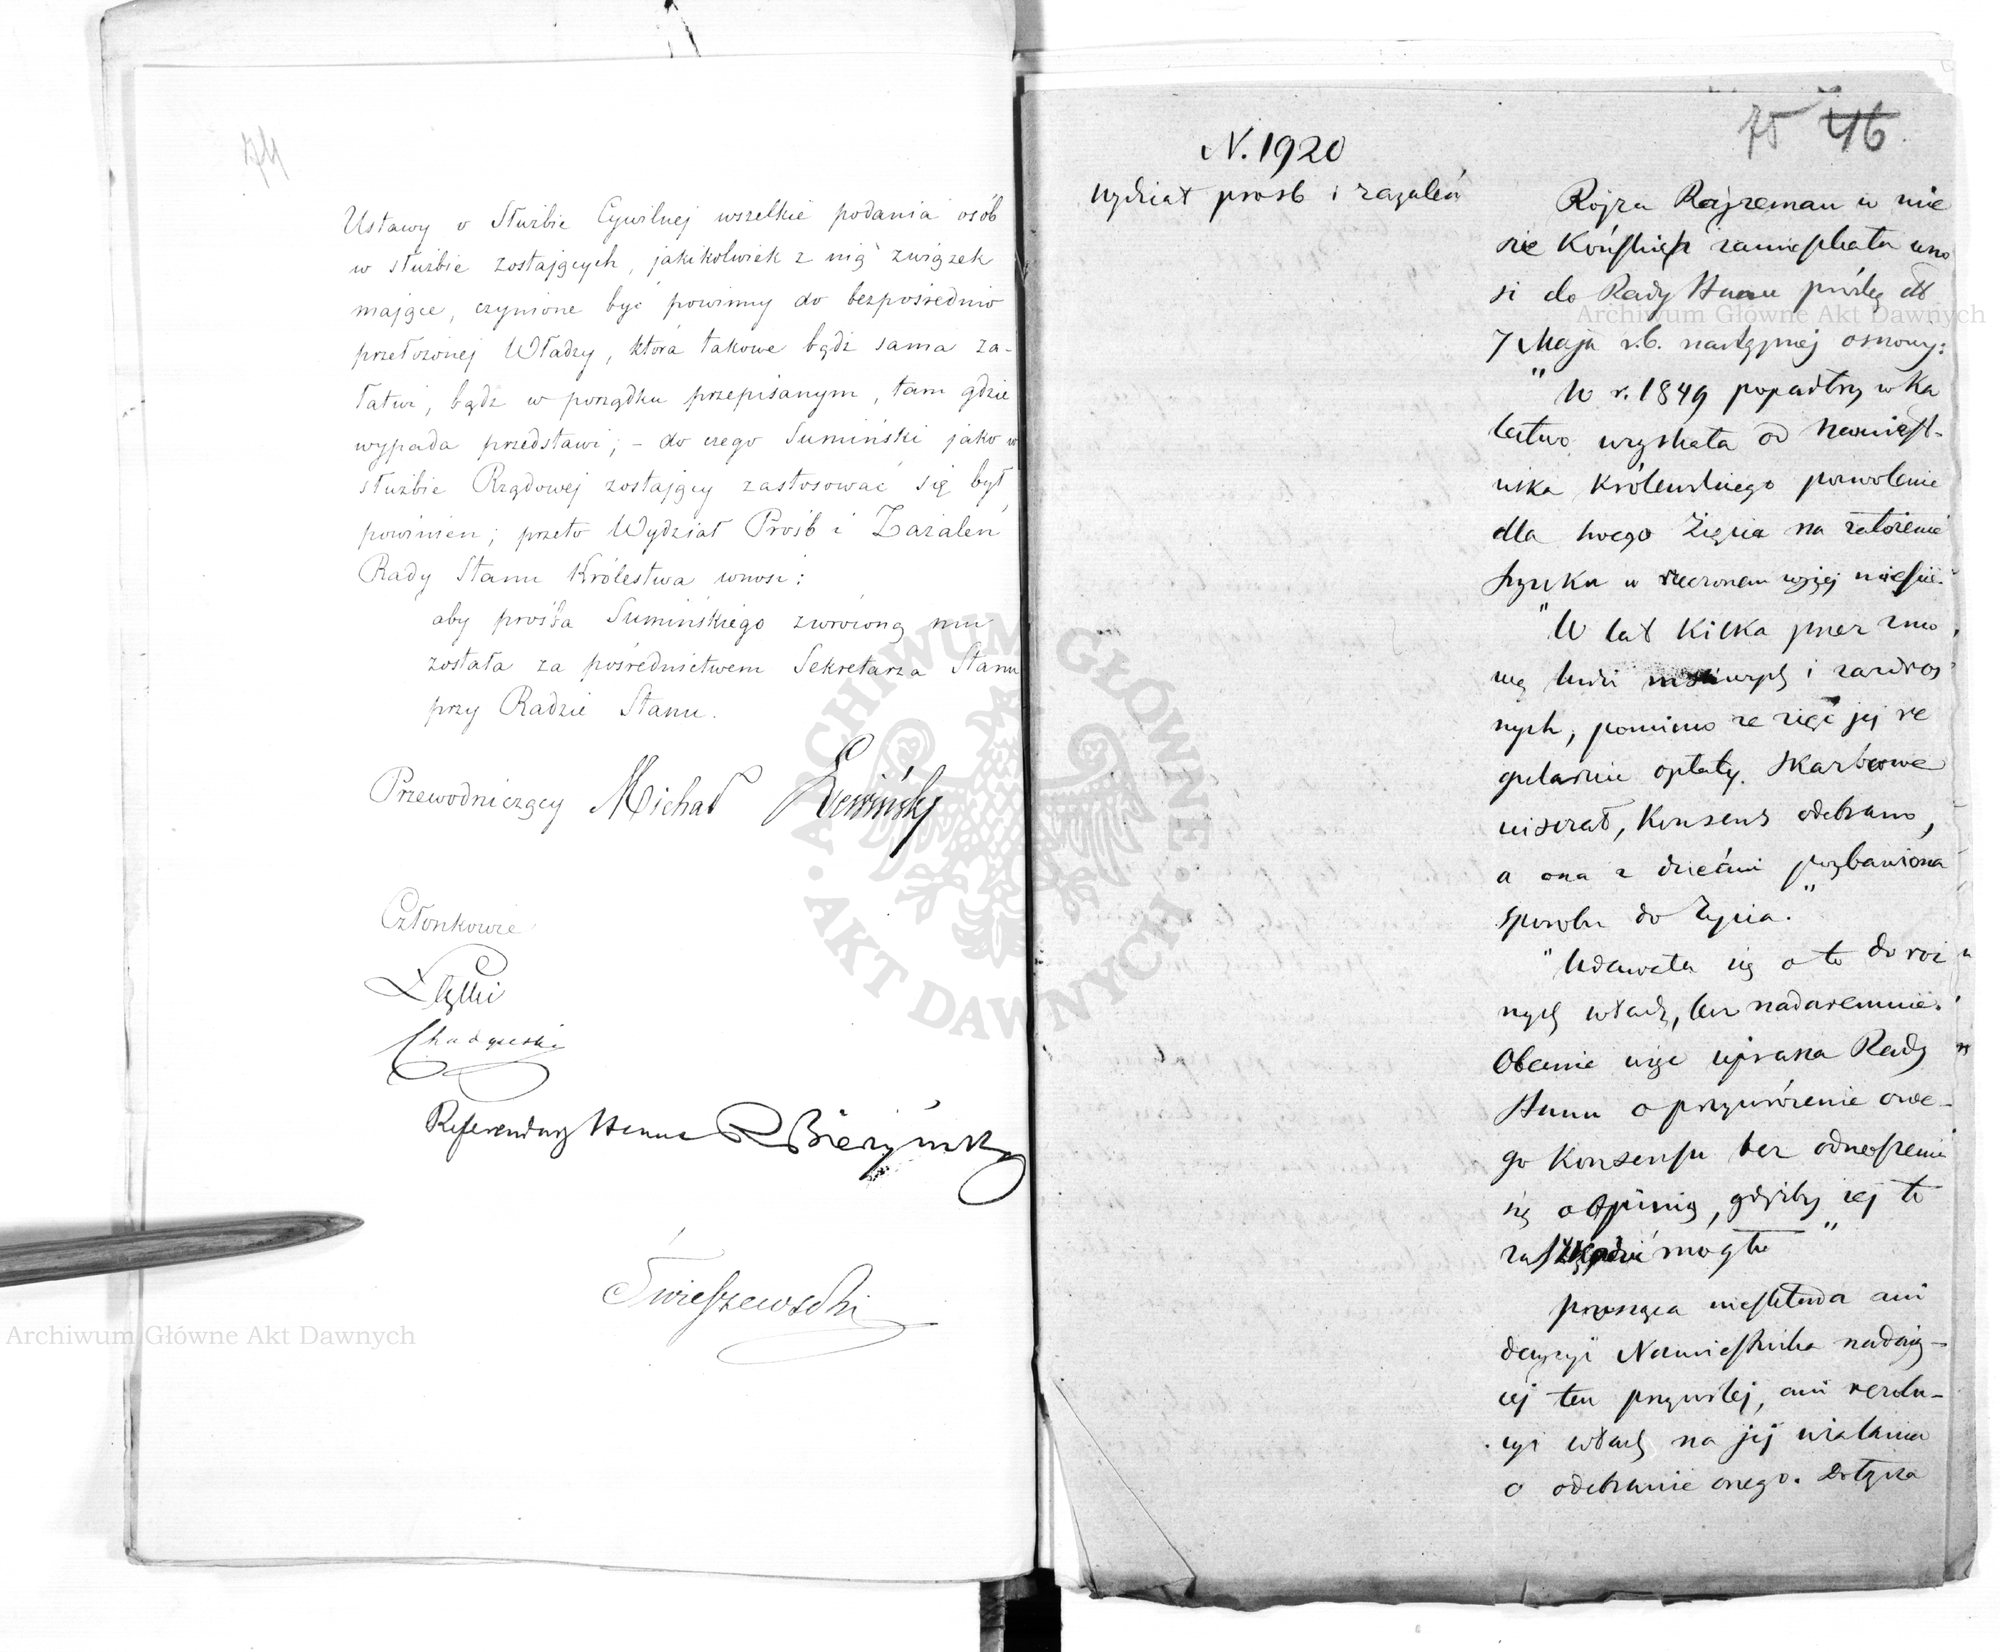 74
Ustawy o Służbie Cywilnej wszelkie podania osób
w służbie zostających, jakikolwiek z nią związek
mające, czynione być powinny do bezpośrednio
przełożonej Władzy, która takowe bądź sama za-
łatwi, bądź w porządku przepisanym, tam gdzie
wypada przedstawi; – do czego Sumiński jako w
służbie Rządowej zostający zastosować się był
powinien; przeto Wydział Prośb i Zażaleń
Rady Stanu Królestwa wnosi:
aby prośba Sumińskiego zwróconą mu
została za pośrednictwem Sekretarza Stanu
przy Radzie Stanu.
Przewodniczący Michał
Członkowie
Referendarz Stanu
Świeszewski
75 46
N. 1920
Wydział prosb i zazaleń
Rojza Rajzeman w mie
scie Końskich zamieszkała wno
si do Rady Stanu prósbę dtt
7 Maja r.b. następnej osnowy:
"W r. 1849 popadłszy w ka
lectwo uzyskała od Namiest-
nika Królewskiego pozwolenie
dla swego Zięcia na założenie
szynku w rzeczonem wyżej mieście."
"W lat kilka przez zmo
wę ludzi i zazdros
nych, pomimo ze zięć jej re
gularnie opłaty Skarbowe
uiszczał, Konsens odebrano,
a ona z dziećmi pozbawiona
sposobu do życia."
"Udawała się o to do roz
nych władz, lecz nadaremnie.
Obecnie więc uprasza Rady
Stanu o przywrócenie owe-
go Konsensu bez odnoszenia
się o opinią, gdyżby jej to
zaszkodzić mogło"
prosząca nieskłada ani
decyzyi Namiestnika nadają-
cej ten przywilej, ani rezolu-
cyi władz na jej użalania
o odebranie onego. Dołącza
Archiwum Główne Akt Dawnych
ARCHIWUM GŁÓWNE AKT DAWNYCH
Archiwum Główne Akt Dawnych